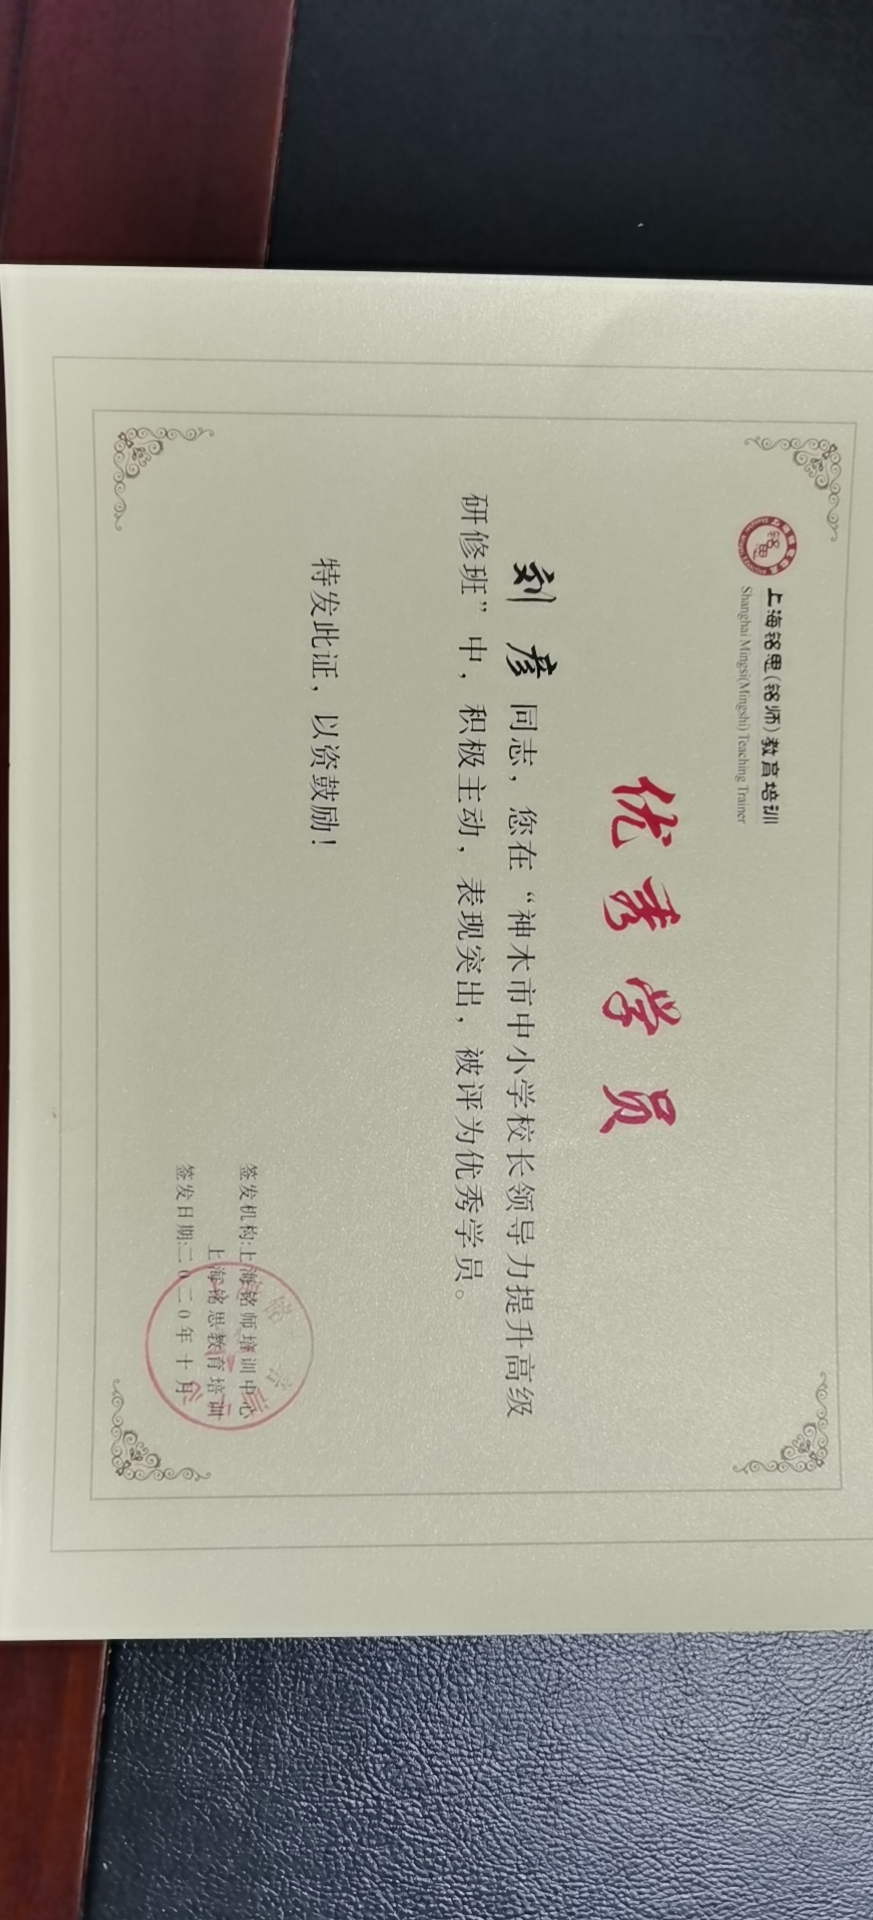 上海铭思(铭师)教育培训
Shanghai Mingsi(Mingshi) Teaching Trainer
铭思
优秀学员
刘彦 同志，您在“神木市中小学校长领导力提升高级
研修班”中，积极主动，表现突出，被评为优秀学员。
特发此证，以资鼓励！
签发机构:上海铭师培训中心
上海铭思教育培训
签发日期:二0二0年十月